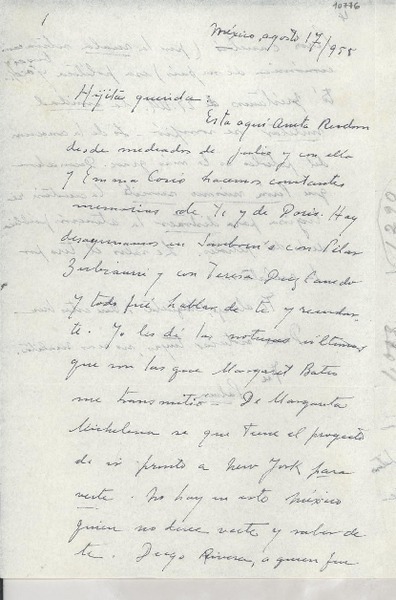 1
10776
México, agosto 17/955
Hijita querida:
Está aquí Anita Rondon
desde mediados de Julio y con ella
y Emma Cosío hacemos constantes
memorias de Ti y de Doris. Hoy
desayunamos en Sanborn's con Pilar
y con Teresa Diez Canedo
y todo fué hablar de te y recordar-
te. Yo les dí las noticias últimas
que son las que Margaret Bates
me transmitió. De Margarita
Michelena se que tiene el proyecto
de ir pronto a New York para
verte. No hay en este México
quien no desee verte y saber de
te. Diego Rivera, a quien fue